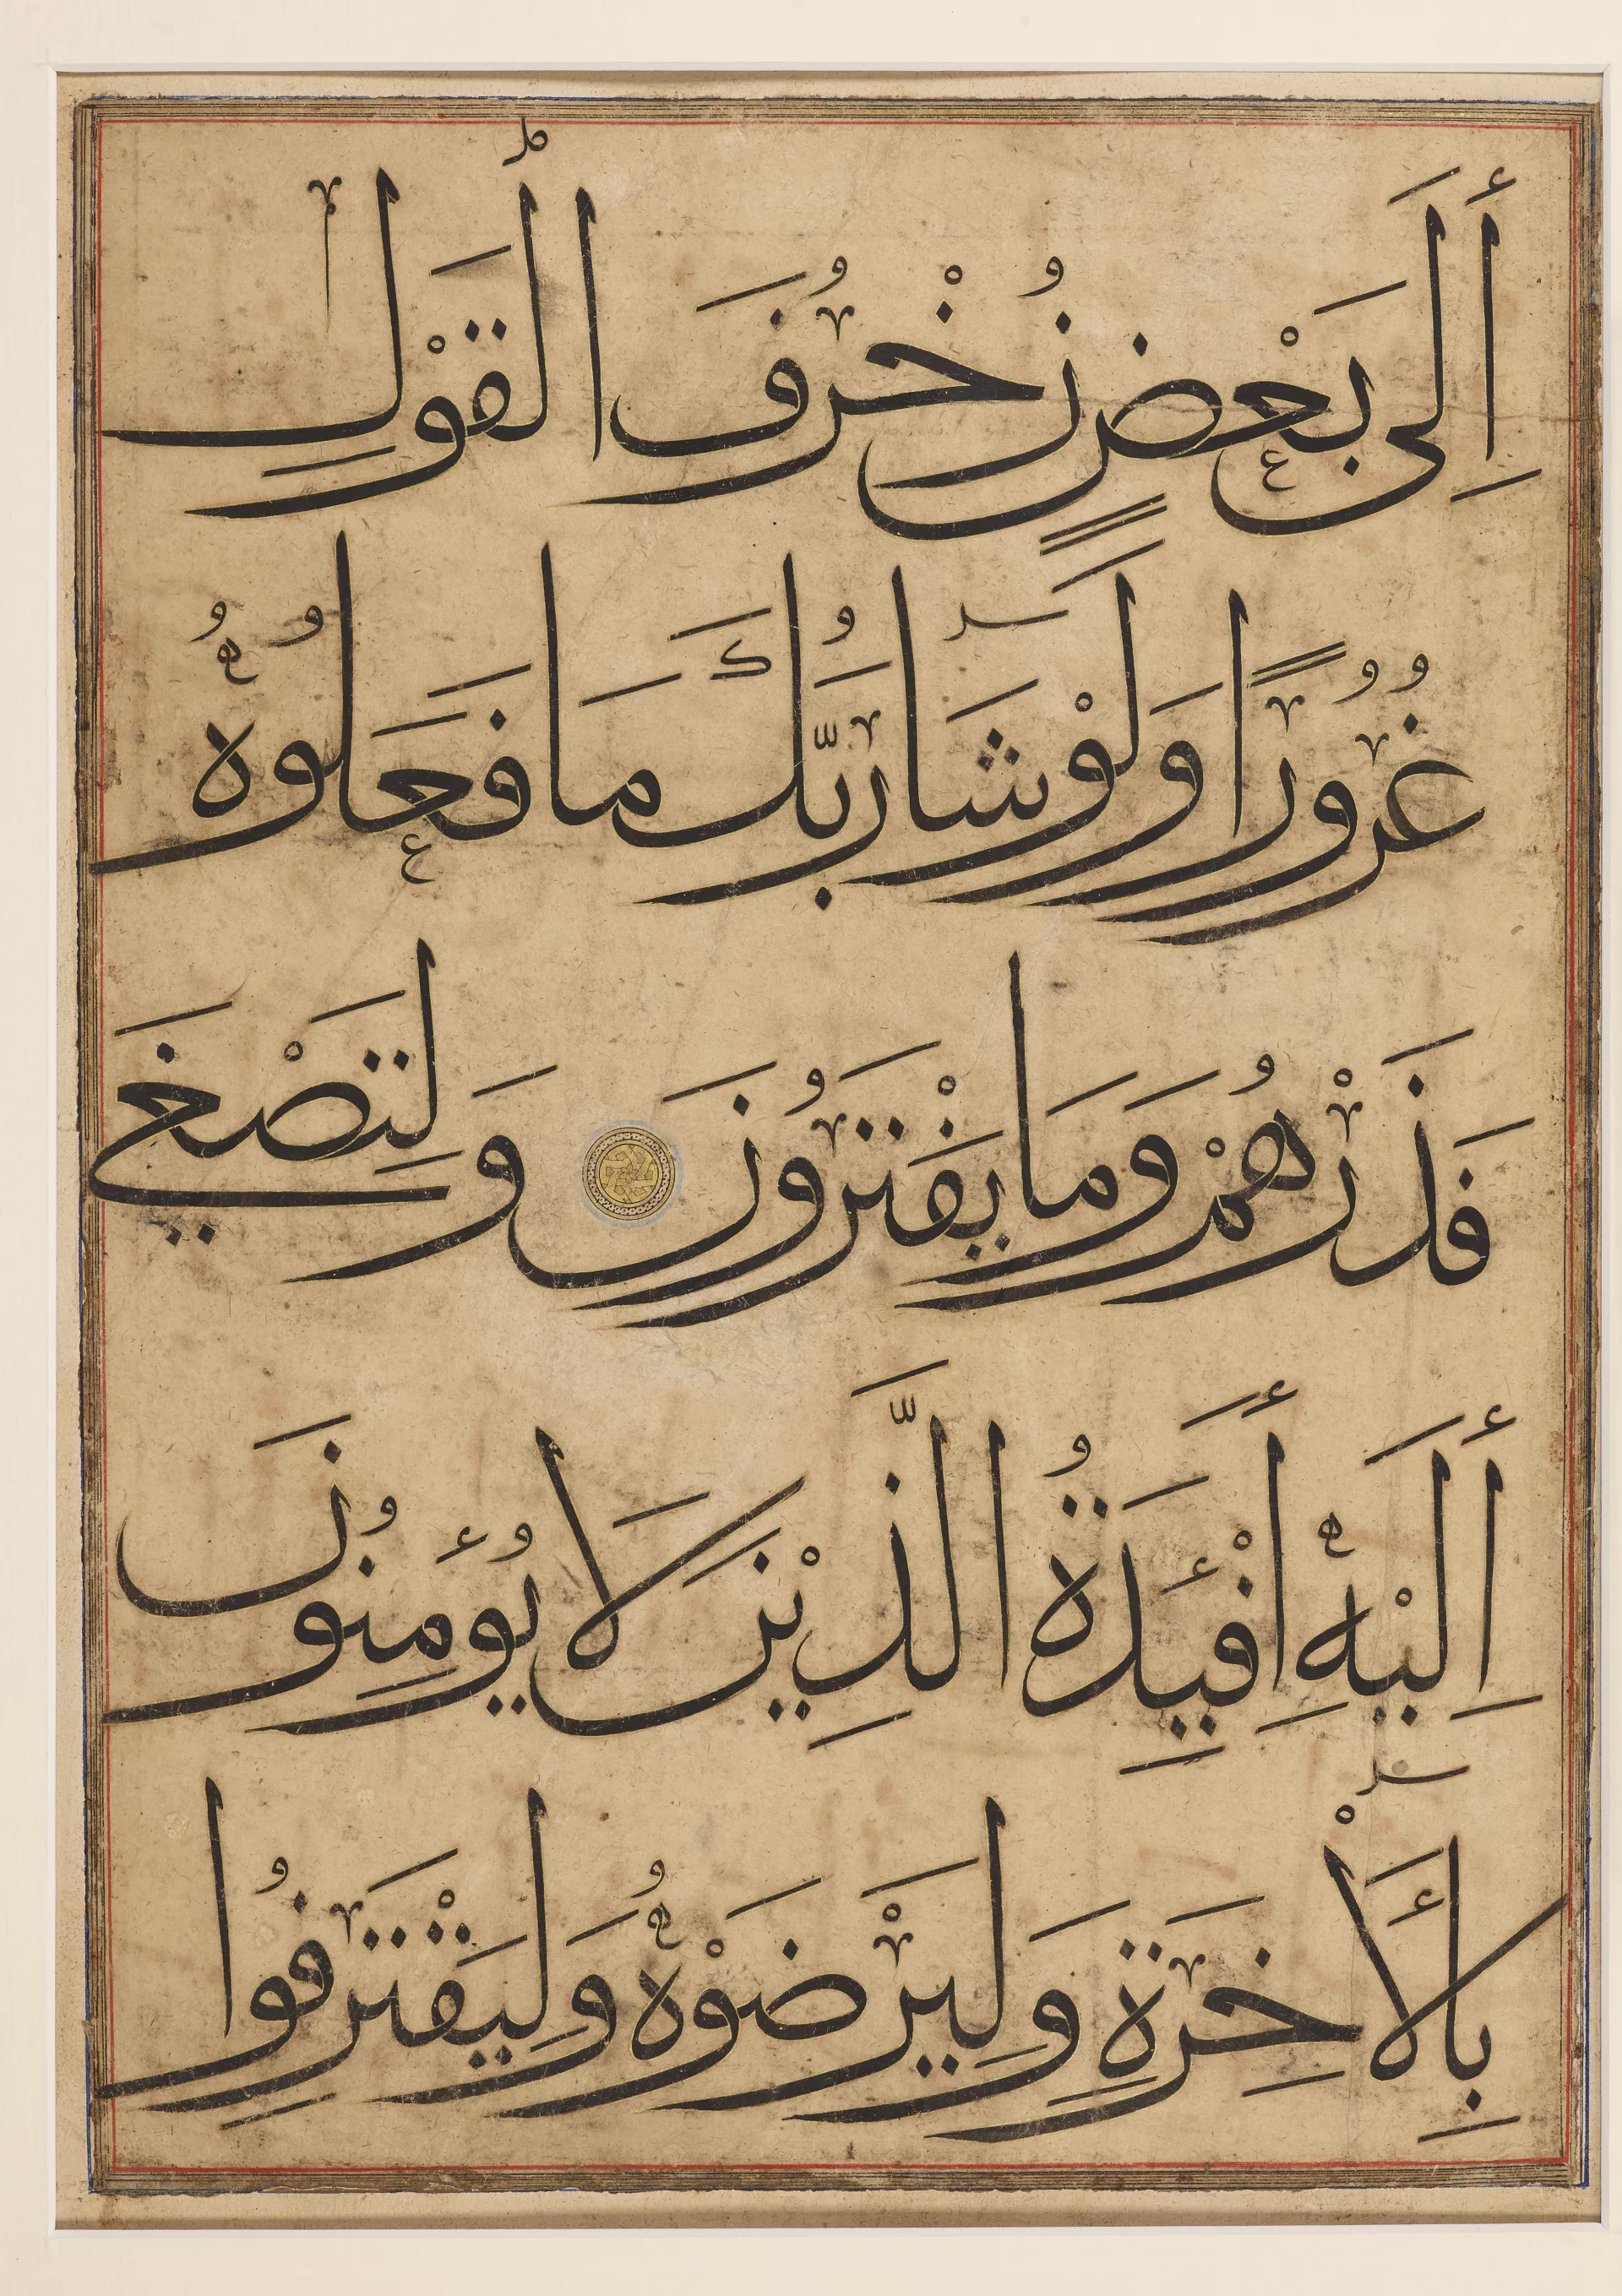 إِلَى بَعْضٍ زُخْرُفَ الْقَوْلِ
غُرُورًا وَلَوْ شَا رَبُّكَ مَا فَعَلُوهُ
فَذَرْهُمْ وَمَا يَفْتَرُونَ وَلِتَصْغَى
إِلَيْهِ أَفْئِدَةُ الَّذِيْنَ لَا يُؤْمِنُونَ
بِالْأَخِرَةِ وَلِيَرْضَوْهُ وَلِيَقْتَرِفُوا